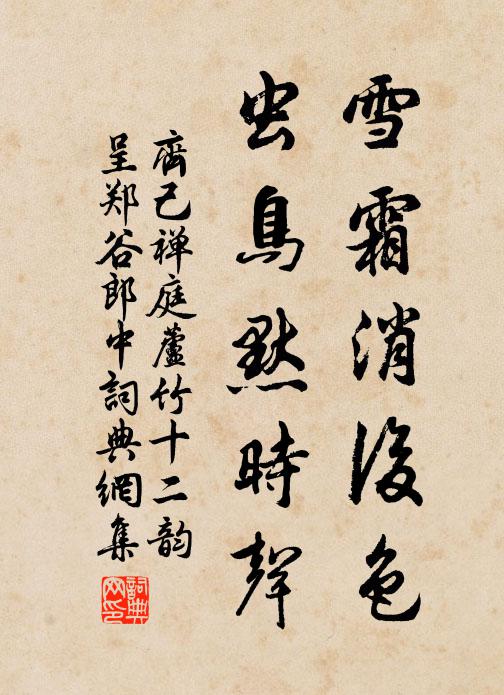 雪霜消後色
虫鳥默時聲
齊己禅庭蘆竹十二韵
呈郑谷郎中詞典網集
詞典
网印